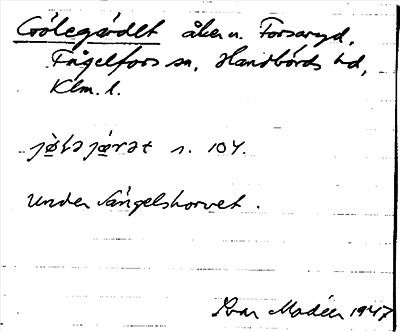 Gölegärdet åker u. Forsaryd,
Fågelfors sn, Handbörds hd,
Klm. l.
jø̀ləjæ̀rət s. 104.
under Sängelshorvet.
Ivar Modéer 1947